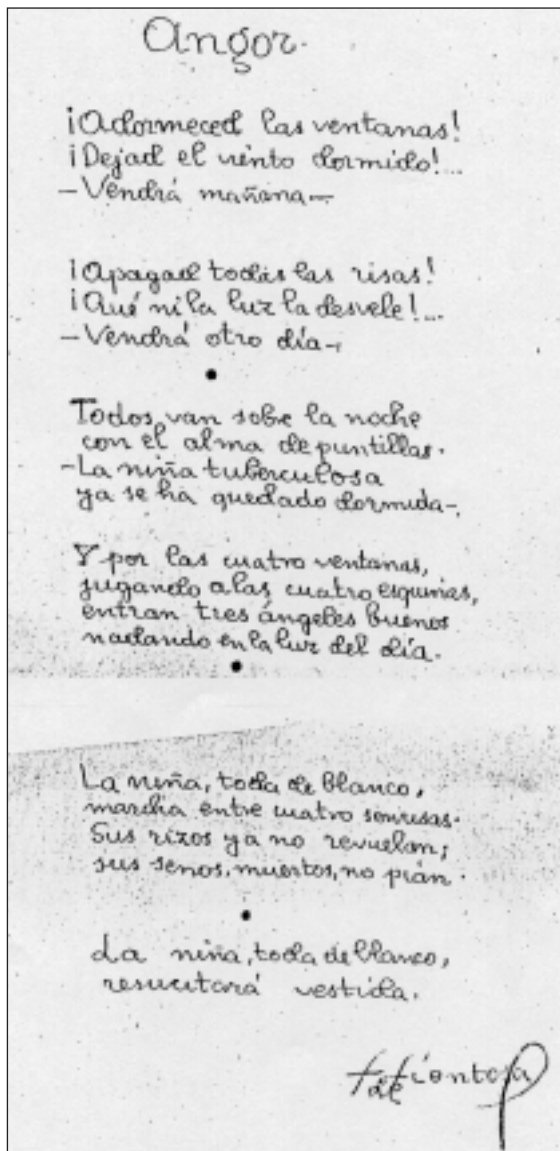 Angor.
¡Adormeced las ventanas!
¡Dejad el viento dormido!...
—Vendrá mañana—
¡Apagad todas las risas!
¡Qué ni la luz la desvele!...
—Vendrá otro día—
Todos van sobre la noche
con el alma de puntillas.
—La niña tuberculosa
ya se ha quedado dormida—
Y por las cuatro ventanas,
jugando a las cuatro esquinas,
entran tres ángeles buenos
nadando en la luz del día.
La niña, toda de blanco,
marcha entre cuatro sonrisas.
Sus rizos ya no revuelan;
sus senos, muertos, no pían.
La niña, toda de blanco,
resucitará vestida.
de